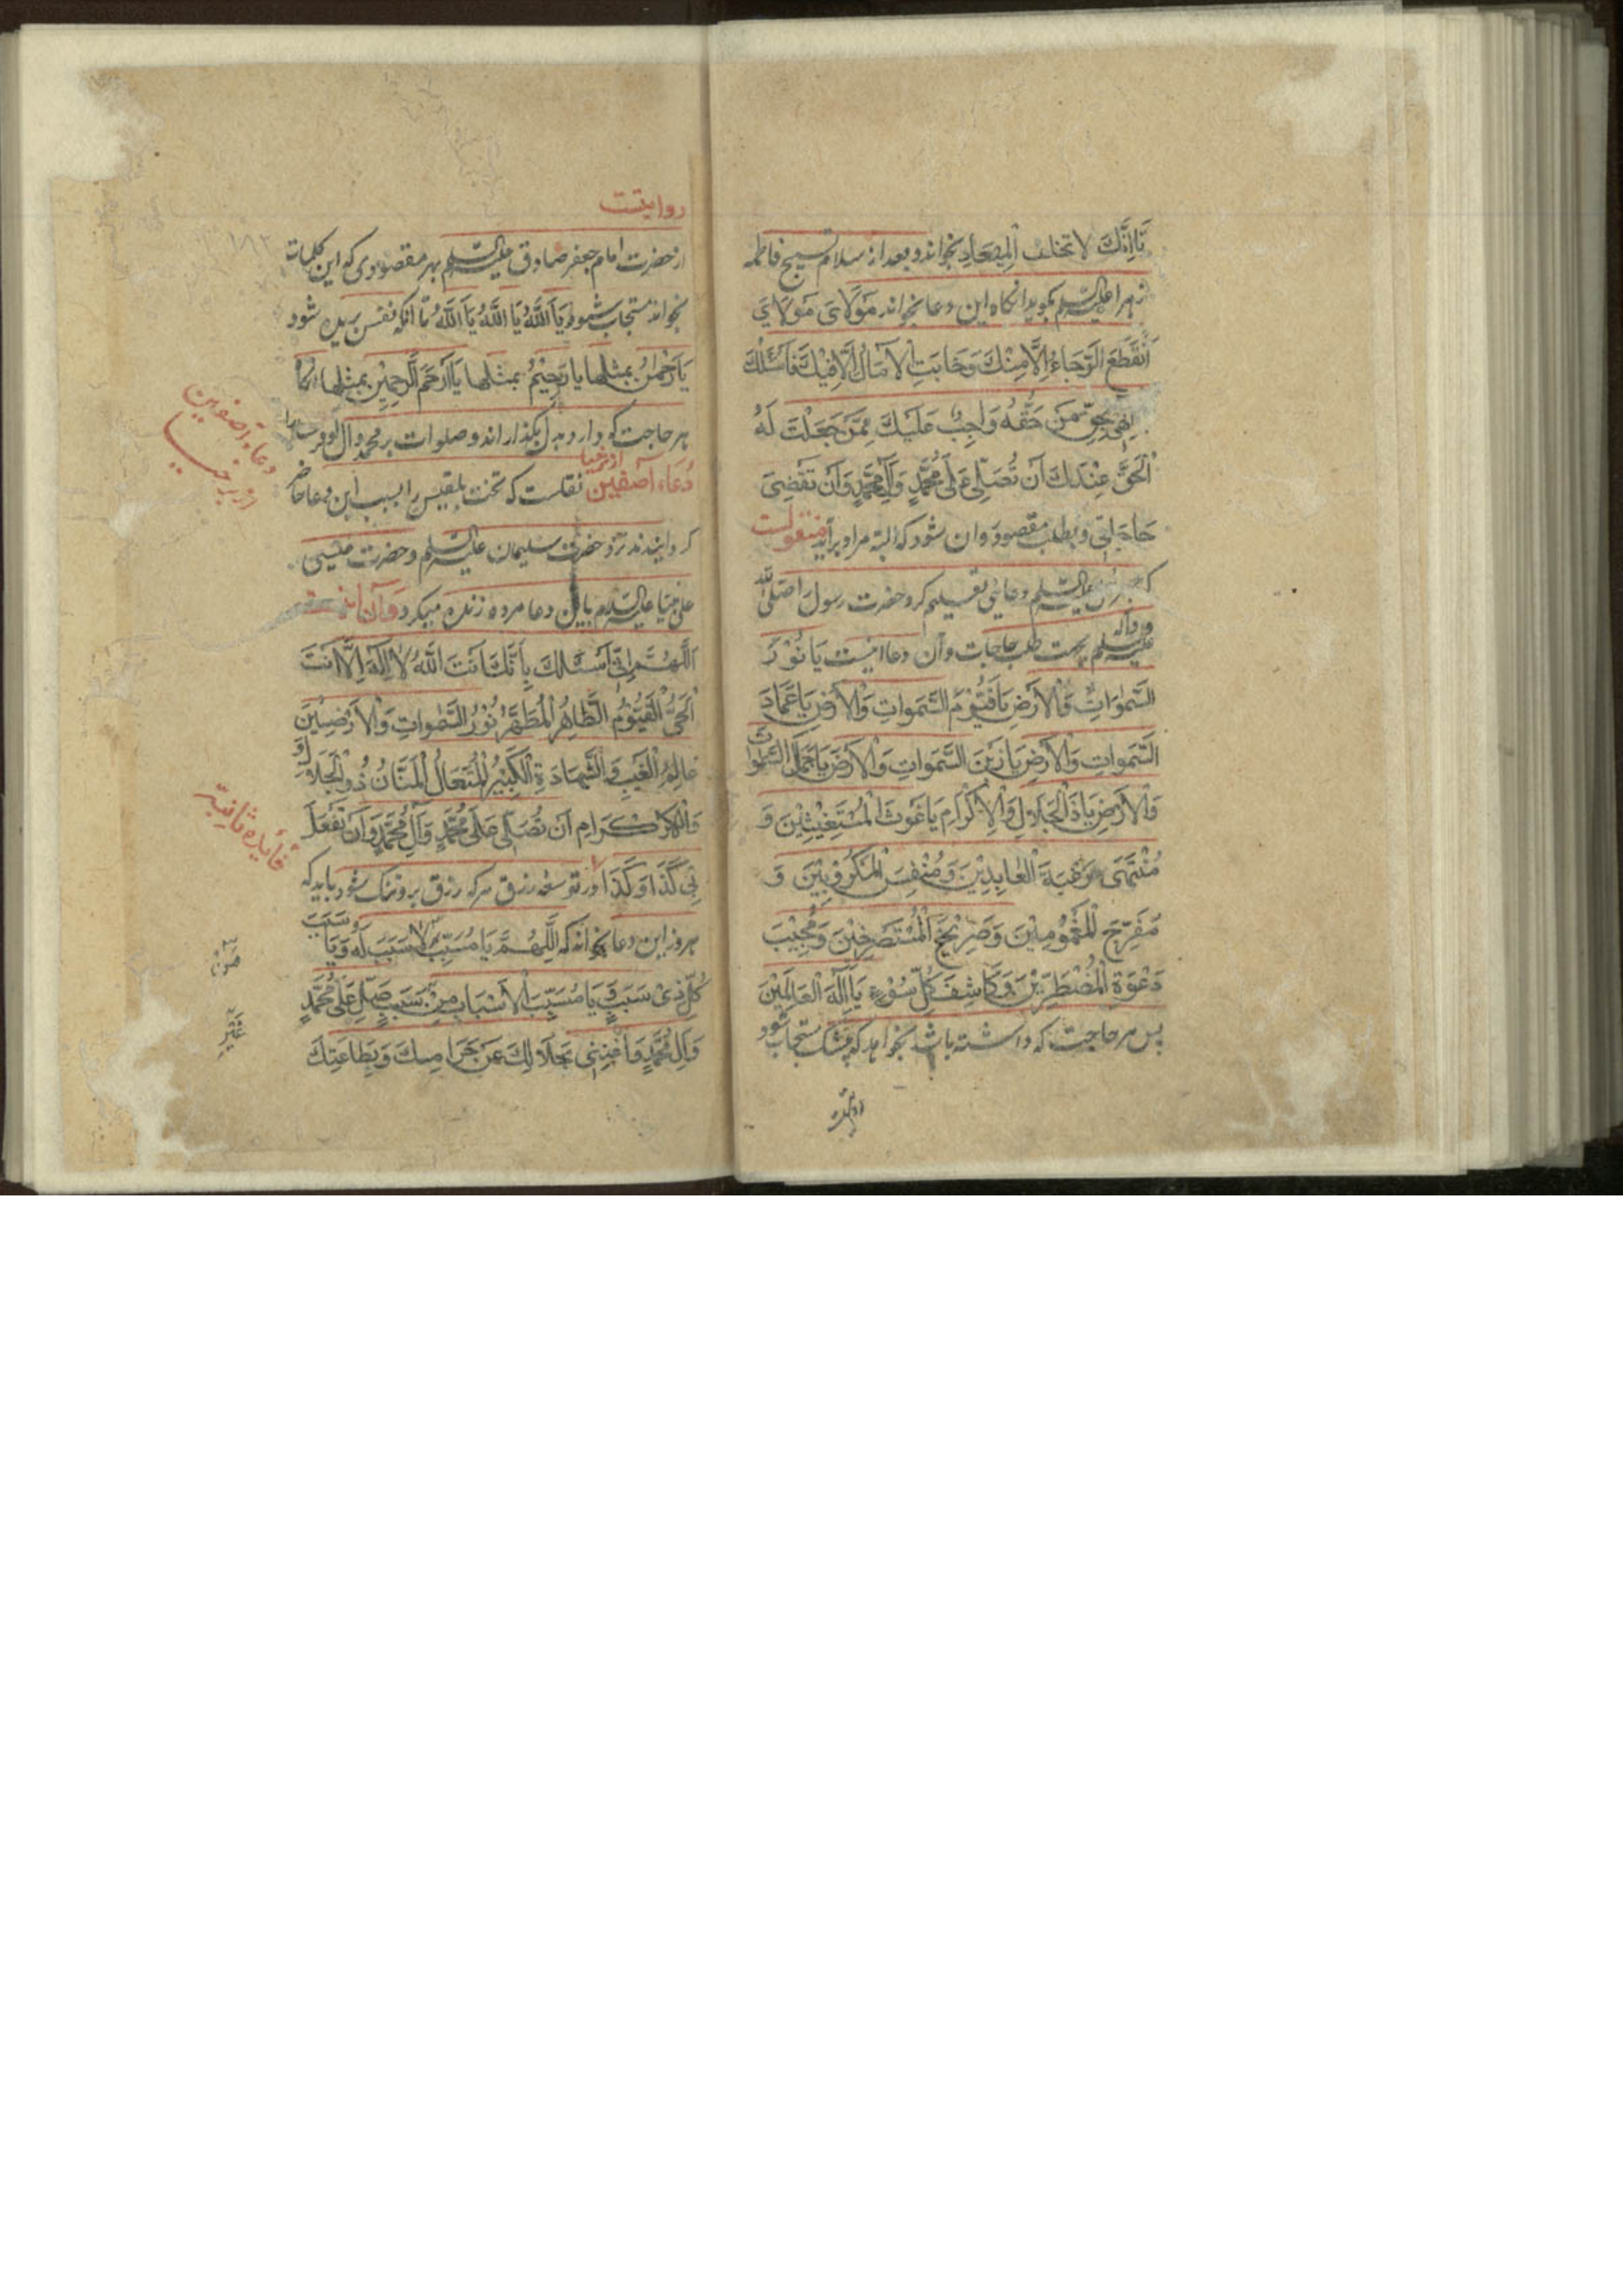 تَا اِنَّكَ لا تخلف الْمِيعَادِ بخواند و بعد از سلام تسبیح فاطمه
زهرا علیه السلم بکوید انکاه این دعا بخواند مَوْلَايَ مَوْلَايَ
اَنْقَطَعَ الرَّجَاءُ اِلَّا مِنْكَ وَخَابَتِ الْاٰمَالُ اِلَّا فِيْكَ فَاَسْئَلُكَ
اِلٰهِي بِحَقِّ مَنْ حَقُّهُ وَاجِبٌ عَلَيْكَ مِمَّنْ جَعَلْتَ لَهُ
الْحَقَّ عِنْدَكَ اَنْ تُصَلِّيَ عَلٰى مُحَمَّدٍ وَاٰلِ مُحَمَّدٍ وَاَنْ تَقْضِيَ
حَاجَاتِي و بطلب مقصود و ان شود که البته مراد برآید منقولست
که جبرئیل علیه السلم دعائی تعلیم کرد حضرت رسول را صلی الله
علیه و آله و سلم بجهت طلب حاجات و آن دعا اینست يَا نُوْرَ
السَّمٰوَاتِ وَالْاَرْضِ يَا قَيُّوْمَ السَّمٰوَاتِ وَالْاَرْضِ يَا عِمَادَ
السَّمٰوَاتِ وَالْاَرْضِ يَا زَيْنَ السَّمٰوَاتِ وَالْاَرْضِ يَا جَمَالَ السَّمٰوَاتِ
وَالْاَرْضِ يَا ذَا الْجَلَالِ وَالْاِكْرَامِ يَا غَوْثَ الْمُسْتَغِيْثِيْنَ وَ
مُنْتَهٰى رَهْبَةَ الْعَابِدِيْنَ وَمُنْفِسَ الْمَكْرُوْبِيْنَ وَ
مُفَرِّحَ الْمَغْمُوْمِيْنَ وَصَرِيْخَ الْمُسْتَصْرِخِيْنَ وَمُجِيْبَ
دَعْوَةِ الْمُضْطَرِّيْنَ وَكَاشِفَ كُلِّ سُوْءٍ يَا اِلٰهَ الْعَالَمِيْنَ
پس هر حاجت که داشته باشد بخواهد که بیشک مستجاب شود
روایتست
از حضرت امام جعفر صادق علیه السلم بهر مقصودی که این کلمات
بخواند مستجاب شود يَا اَللّٰهُ يَا اَللّٰهُ يَا اَللّٰهُ تا آنکه نفس بریده شود
يَا رَحْمٰنُ بمثلها يَا رَحِيْمُ بمثلها يَا اَرْحَمَ الرَّاحِمِيْنَ بمثلها
هر حاجت که دارد بدل بکذراند و صلوات بر محمد و آل او فرستد
دعاء آصف بن برخیا نقلست که تخت بلقیس را بسبب این دعا حاضر
کردانیدند نزد حضرت سلیمان علیه السلم و حضرت عیسی
علی نبینا علیه السلام باین دعا مرده زنده میکرد و آن اینست
اَللّٰهُمَّ اِنِّي اَسْئَلُكَ بِاَنَّكَ اَنْتَ اللّٰهُ لَا اِلٰهَ اِلَّا اَنْتَ
الْحَيُّ الْقَيُّوْمُ الطَّاهِرُ الْمُطَهَّرُ نُوْرُ السَّمٰوَاتِ وَالْاَرَضِيْنَ
عَالِمُ الْغَيْبِ وَالشَّهَادَةِ الْكَبِيْرُ الْمُتَعَالُ الْمَنَّانُ ذُو الْجَلَالِ
وَالْاِكْرَامِ اَنْ تُصَلِّيَ عَلٰى مُحَمَّدٍ وَاٰلِ مُحَمَّدٍ وَاَنْ تَفْعَلَ
بِي كَذَا وَكَذَا و در توسعه رزق هر که رزق برو تنک شود باید که
هر روز این دعا بخواند که اَللّٰهُمَّ يَا سَبَبَ مَنْ لَا سَبَبَ لَهُ وَيَا سَبَبَ
كُلِّ ذِيْ سَبَبٍ وَيَا مُسَبِّبَ الْاَسْبَابِ مِنْ غَيْرِ سَبَبٍ صَلِّ عَلٰى مُحَمَّدٍ
وَاٰلِ مُحَمَّدٍ وَاَغْنِنِيْ بِحَلَالِكَ عَنْ حَرَامِكَ وَبِطَاعَتِكَ
دعاء آصف بن برخیا